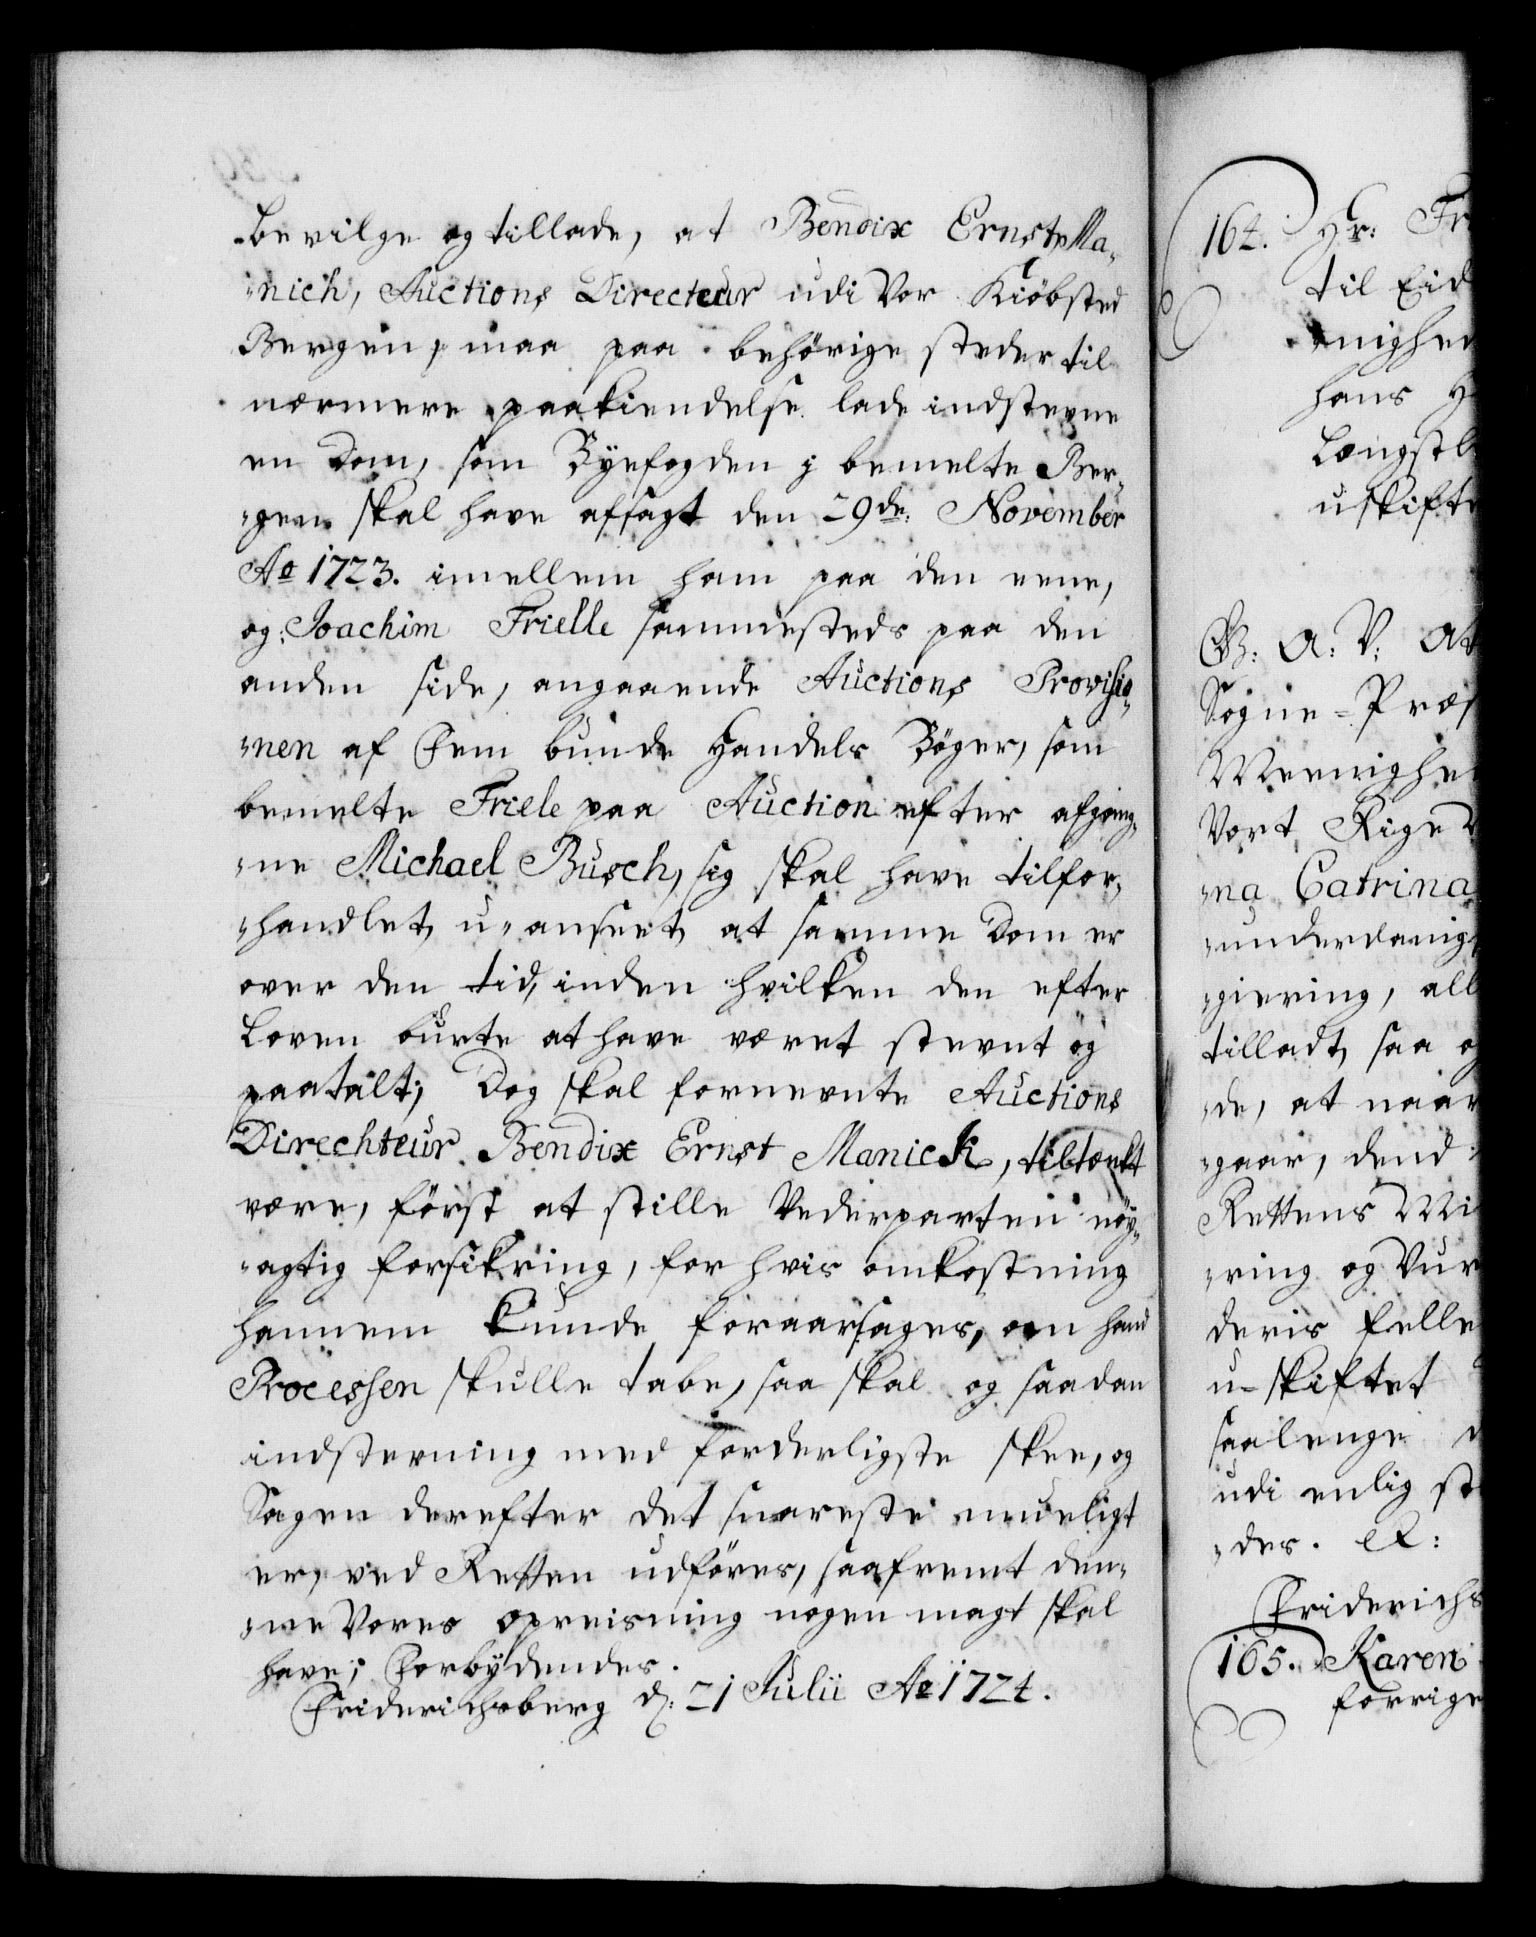 bevilge og tillade, at Bendix Ernst Ma„
„nich, Auctions Directeur udi Vor Kiöbsted
Bergen, maa paa behörige steder til
nærmere paakiendelse lade indstevne
en Dom, som Byefogden j bemelte Ber„
„gen skal have afsagt den 29de: November
Ao 1723. imellem ham paa den eene,
og Joachim Frielle sammesteds paa den
anden side, angaaende Auctions Provisio„
„nen af Fem bunde Handels Bøger, som
bemelte Friele paa Auction efter afgang„
„ne Michael Busch, sig skal have tilfor„
„handlet, u„anseet, at samme Dom er
over den tid, inden hvilken den efter
Loven burte at have været stevnt og
paatalt; Dog skal fornevnte Auctions
Direchteur Bendix Ernst Manick, tiltænkt
være, först at stille Vederparten nöy„
„agtig forsikring, for hvis omkostning
hannem kunde foraarsages, om hand
Processen skulle tabe, saa skal og saadan
indstevning med forderligste skee, og
Sagen derefter det snareste mueligt
er, ved Retten udföres, saafremt den„
„ne Vores opreisning nogen magt skal
have; Forbydendes.
Friderichsberg d: 21 Julii Ao 1724.
164. Hr: Fr
til Eid
„nighed
hans H
Længstl
uskifte
G: A: V: At
Sogne-Præs
Meenighe
Vort Rige
„na Catrina
„underdanig
„giering, all
tilladt, saa og
„de, at naar
„gaar, dend
Rettens Mi
„ring og Vur
deris felle
u-skiftet
saalenge
udi enlig st
„des. R:
Friderichs
165. Karen
forrige